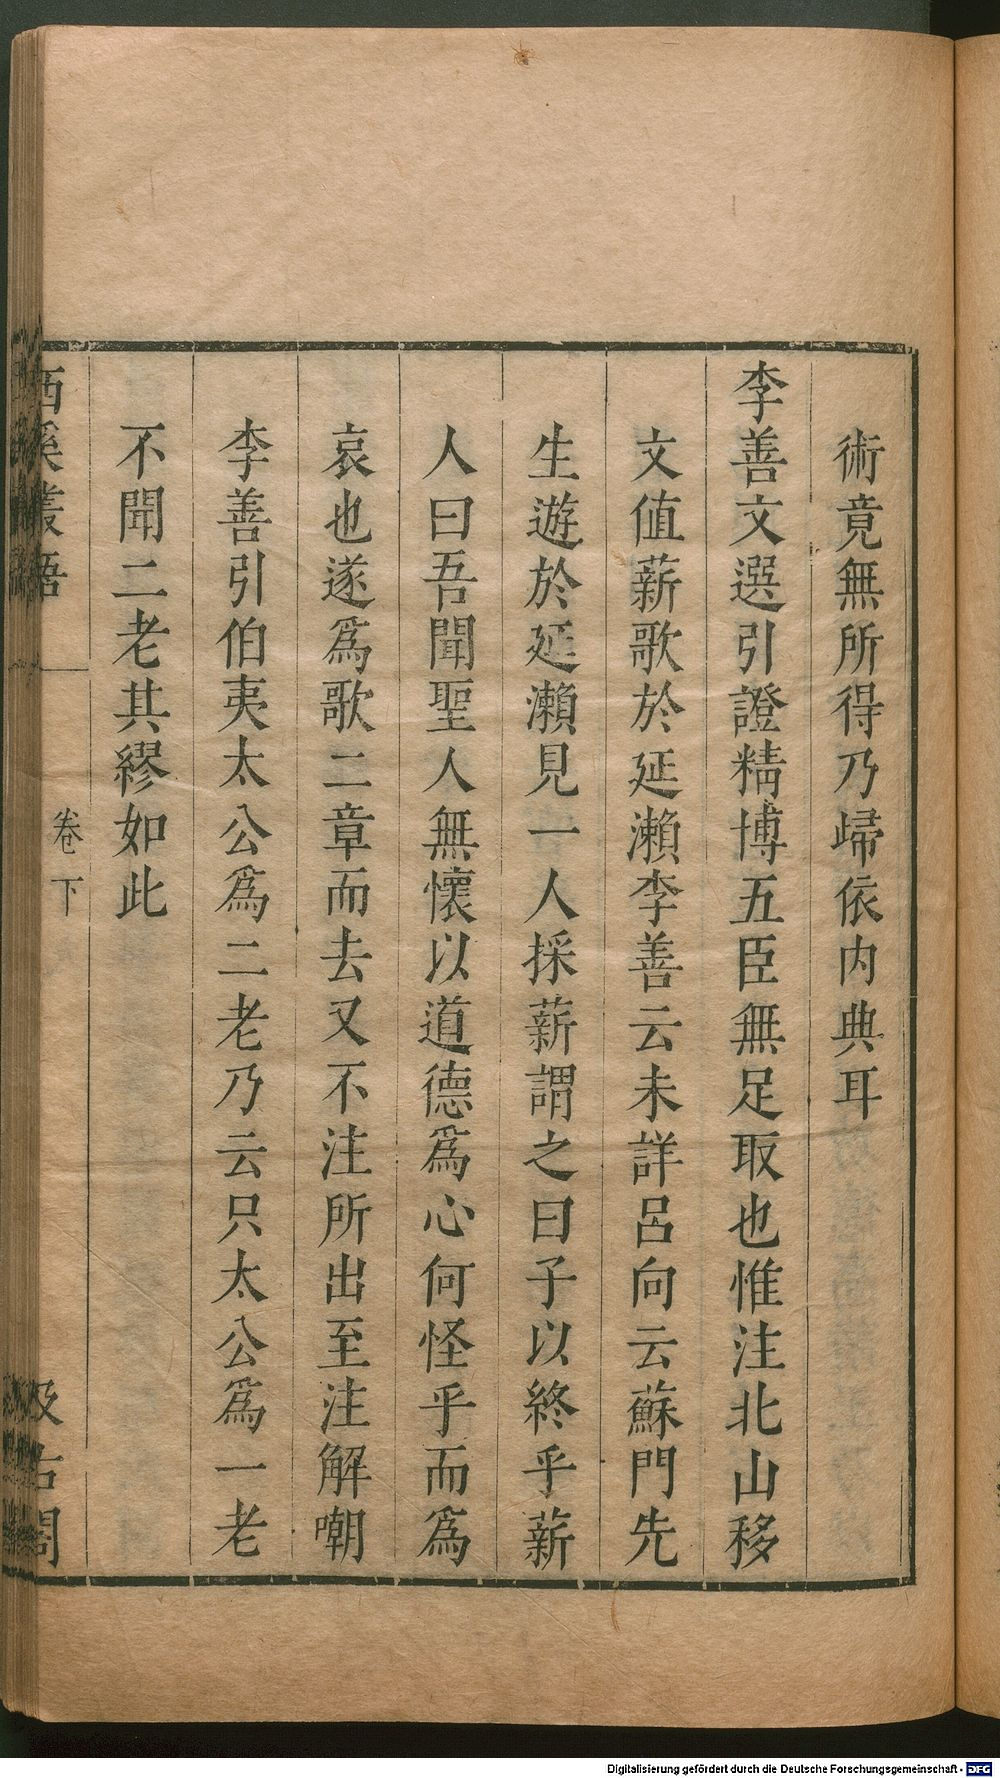 術竟無所得乃歸依内典耳
李善文選引證精博五臣無足取也惟注北山移
文值薪歌於延瀨李善云未詳呂向云蘇門先
生遊於延瀨見一人採薪謂之曰子以終乎薪
人曰吾聞聖人無懷以道德為心何怪乎而為
哀也遂為歌二章而去又不注所出至注解嘲
李善引伯夷太公為二老乃云只太公為一老
不聞二老其繆如此
西溪叢語 卷下 汲古閣
Digitalisierung gefördert durch die Deutsche Forschungsgemeinschaft - DFG